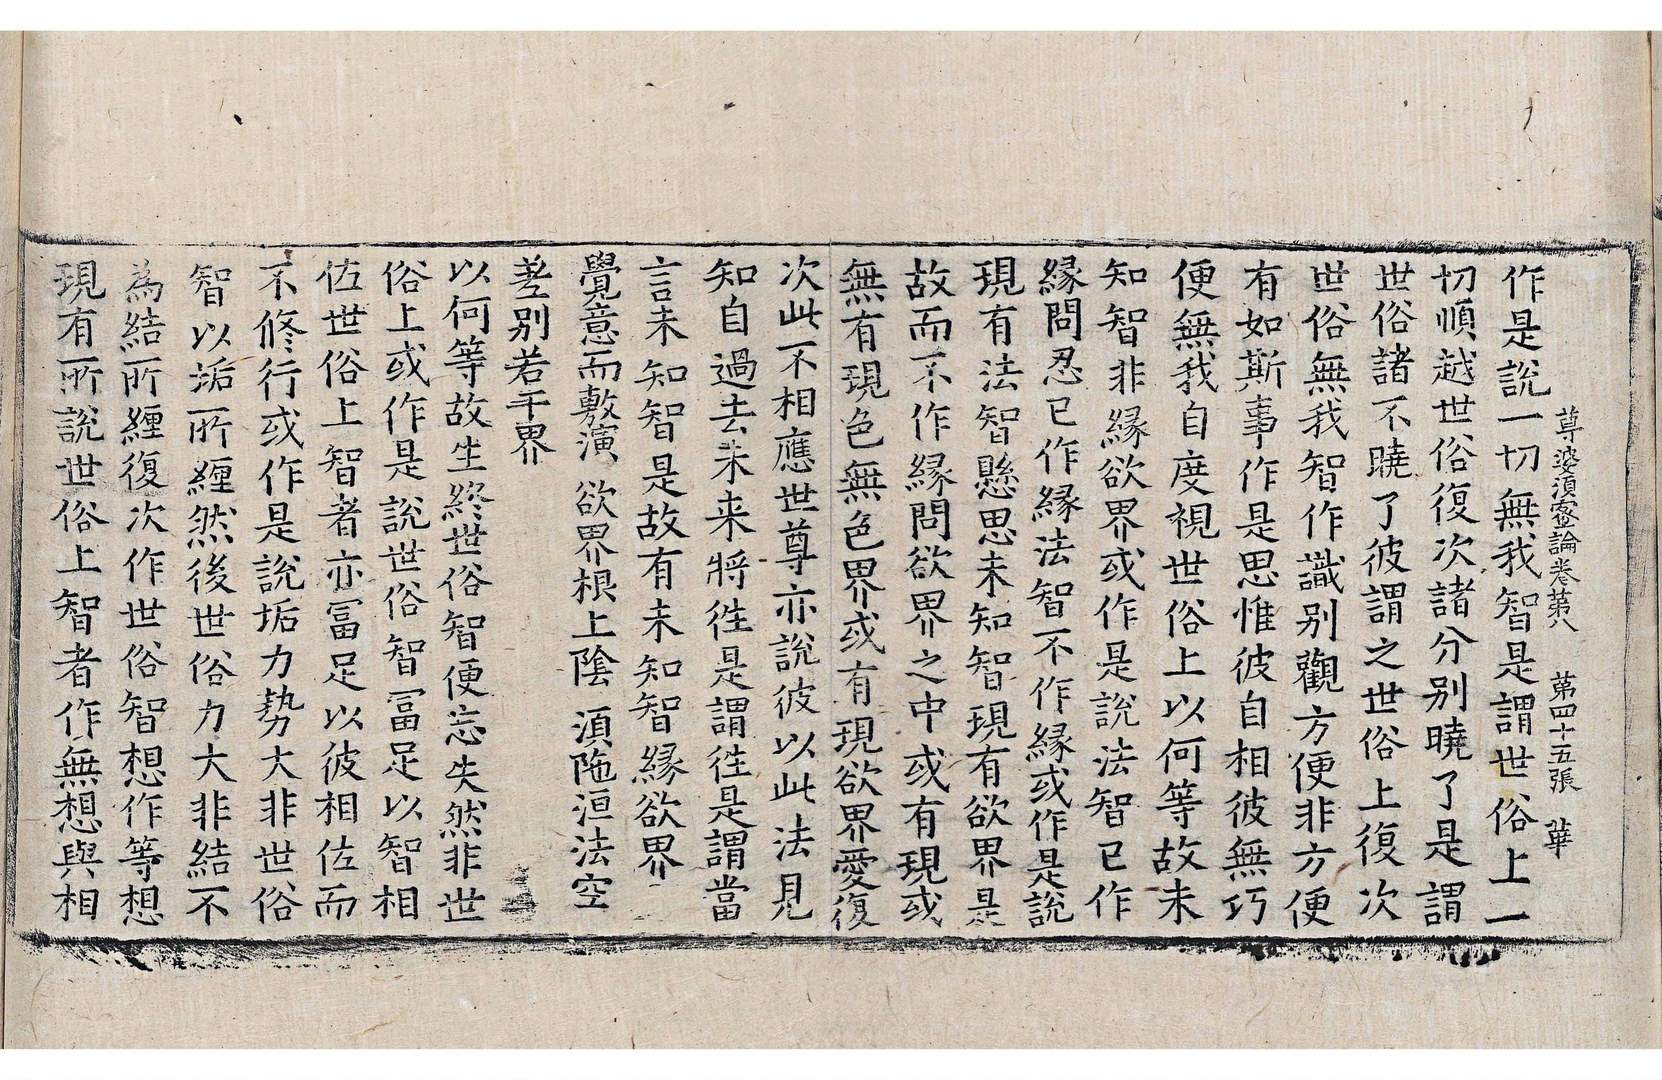 作是說一切無我智是謂世俗上一
尊婆須蜜論卷第八　第四十五張　華
切順越世俗復次諸分别曉了是謂
世俗諸不曉了彼謂之世俗上復次
世俗無我智作識别觀方便非方便
有如斯事作是思惟彼自相彼無巧
便無我自度視世俗上以何等故未
知智非緣欲界或作是說法智已作
緣問忍已作緣法智不作緣或作是說
現有法智懸思未知智現有欲界是
故而不作緣問欲界之中或有現或
無有現色無色界或有現欲界愛復
次此不相應世尊亦說彼以此法見
知自過去未来將徃是謂徃是謂當
言未知智是故有未知智緣欲界
覺意而敷演　欲界根上陰　須陁洹法空
差别若干界
以何等故生終世俗智便忘失然非世
俗上或作是說世俗智冨足以智相
佐世俗上智者亦冨足以彼相佐而
不修行或作是說垢力勢大非世俗
智以垢所纏然後世俗力大非結不
為結所纏復次作世俗智想作等想
現有所說世俗上智者作無想與相